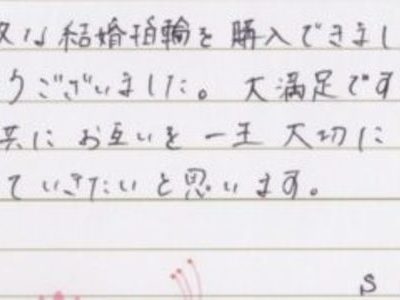 な結婚指輪を購入できまし
うございました。大満足です
共に お互いを 一生 大切に
ていきたいと思います。
S